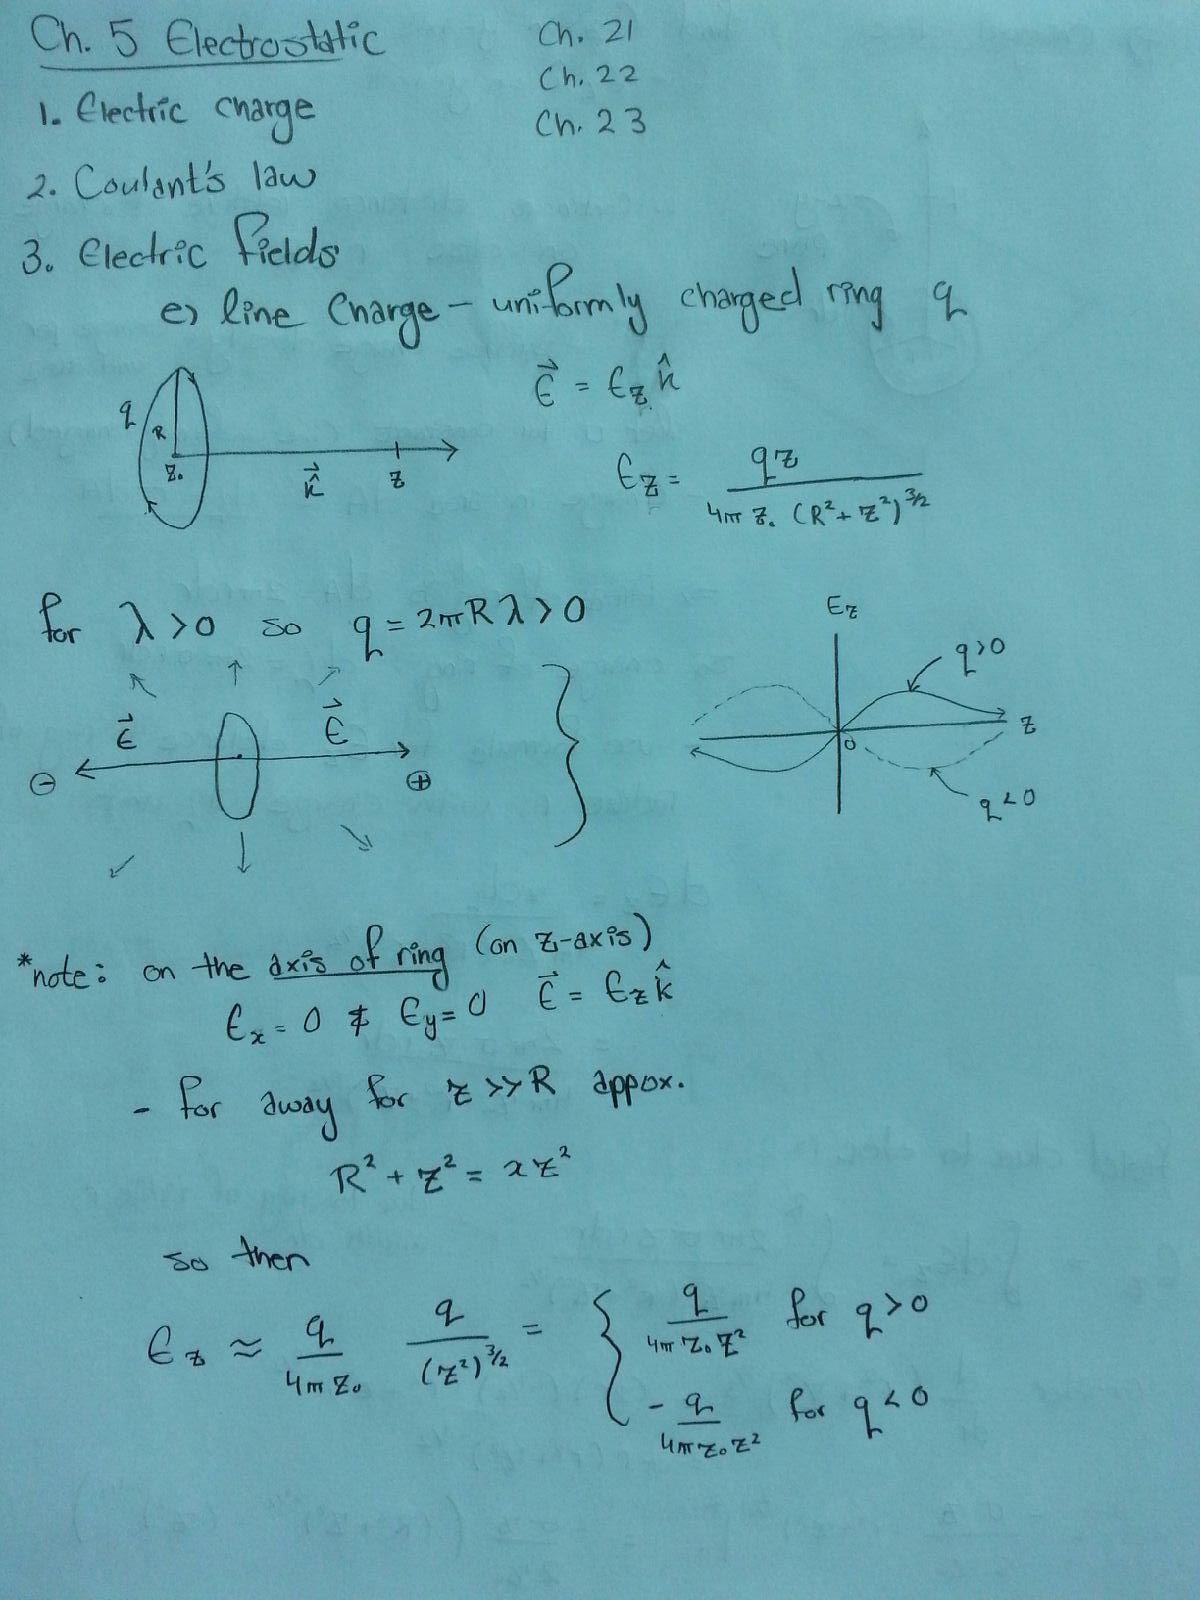 Ch. 5 Electrostatic
Ch. 21
Ch. 22
Ch. 23
1. Electric charge
2. Coulant's law
3. Electric fields
e) line Charge – uniformly charged ring q
q
R
z₀
k̂
z
E⃗ = E_z k̂
E_z = qz / 4π z₀ (R² + z²)^3/2
for λ > 0 so q = 2πRλ > 0
E⃗
E⃗
⊖
⊕
E_z
q>0
z
0
q<0
*note: on the axis of ring (on z-axis)
E_x = 0 & E_y = 0 E⃗ = E_z k̂
- for away for z >> R appox.
R² + z² = xz²
so then
E_z ≈ q / 4π z₀ q / (z²)^3/2 = { q / 4π z₀ z² for q > 0
- q / 4π z₀ z² for q < 0